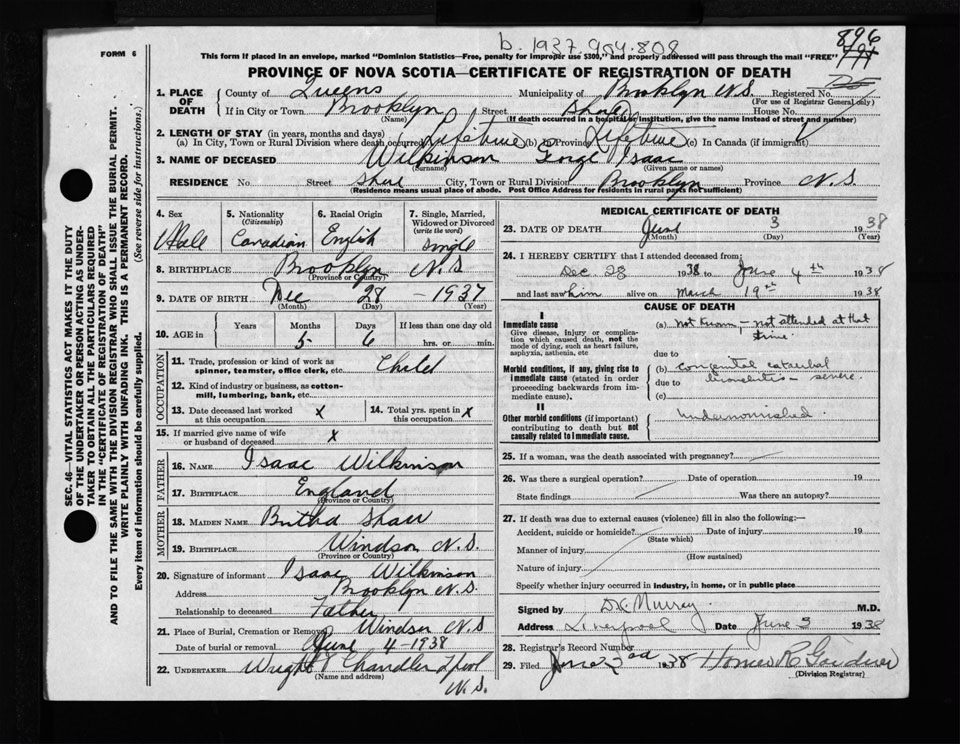 b. 1937.904.808
896
FORM 6
This form if placed in an envelope, marked "Dominion Statistics—Free, penalty for improper use $300," and properly addressed will pass through the mail "FREE"
PROVINCE OF NOVA SCOTIA—CERTIFICATE OF REGISTRATION OF DEATH
SEC. 46—VITAL STATISTICS ACT MAKES IT THE DUTY
OF THE UNDERTAKER OR PERSON ACTING AS UNDER-
TAKER TO OBTAIN ALL THE PARTICULARS REQUIRED
IN THE "CERTIFICATE OF REGISTRATION OF DEATH"
AND TO FILE THE SAME WITH THE DIVISION REGISTRAR WHO SHALL ISSUE THE BURIAL PERMIT.
WRITE PLAINLY WITH UNFADING INK. THIS IS A PERMANENT RECORD.
Every item of information should be carefully supplied. (See reverse side for instructions.)
1. PLACE OF DEATH County of Queens Municipality of Brooklyn N.S. Registered No.
(For use of Registrar General only)
If in City or Town Brooklyn Street Shore House No.
(Name) (If death occurred in a hospital or institution, give the name instead of street and number)
2. LENGTH OF STAY (in years, months and days)
(a) In City, Town or Rural Division where death occurred Lifetime (b) In Province Lifetime (c) In Canada (if immigrant)
3. NAME OF DECEASED Wilkinson Isaac
(Surname) (Given name or names)
RESIDENCE No. Street Shore City, Town or Rural Division Brooklyn Province N.S.
(Residence means usual place of abode. Post Office Address for residents in rural parts not sufficient)
4. Sex Male
5. Nationality (Citizenship) Canadian
6. Racial Origin English
7. Single, Married, Widowed or Divorced (write the word) Single
8. BIRTHPLACE Brooklyn N.S
(Province or Country)
9. DATE OF BIRTH Dec 28 - 1937
(Month) (Day) (Year)
10. AGE in Years Months Days If less than one day old
5 6 hrs. or min.
OCCUPATION
11. Trade, profession or kind of work as spinner, teamster, office clerk, etc. Child
12. Kind of industry or business, as cotton-mill, lumbering, bank, etc.
13. Date deceased last worked at this occupation x
14. Total yrs. spent in this occupation x
15. If married give name of wife or husband of deceased x
FATHER
16. NAME Isaac Wilkinson
17. BIRTHPLACE England
(Province or Country)
MOTHER
18. MAIDEN NAME Shaw
19. BIRTHPLACE Windsor N.S.
(Province or Country)
20. Signature of informant Isaac Wilkinson
Address Brooklyn N.S.
Relationship to deceased Father
21. Place of Burial, Cremation or Removal Windsor N.S
Date of burial or removal June 4-1938
22. UNDERTAKER Wright Chandler L'pool
(Name and address)
N.S.
MEDICAL CERTIFICATE OF DEATH
23. DATE OF DEATH June 3 1938
(Month) (Day) (Year)
24. I HEREBY CERTIFY that I attended deceased from:
Dec 28 1938 to June 4th 1938
and last saw him alive on March 19th 1938
CAUSE OF DEATH
I
Immediate cause
Give disease, injury or complication which caused death, not the mode of dying, such as heart failure, asphyxia, asthenia, etc
(a) not known, - not attended at that time.
due to
Morbid conditions, if any, giving rise to immediate cause (stated in order proceeding backwards from immediate cause).
(b) congenital catarrhal
due to bronchitis - severe.
(c)
II
Other morbid conditions (if important) contributing to death but not causally related to immediate cause.
Undernourished.
25. If a woman, was the death associated with pregnancy?
26. Was there a surgical operation? Date of operation 19
State findings Was there an autopsy?
27. If death was due to external causes (violence) fill in also the following:—
Accident, suicide or homicide? Date of injury 19
(State which)
Manner of injury
(How sustained)
Nature of injury
Specify whether injury occurred in industry, in home, or in public place
Signed by D.C. Murray. M.D.
Address Liverpool Date June 3 1938
28. Registrar's Record Number
29. Filed June 3rd 1938 Homer R. Gardner
(Division Registrar)